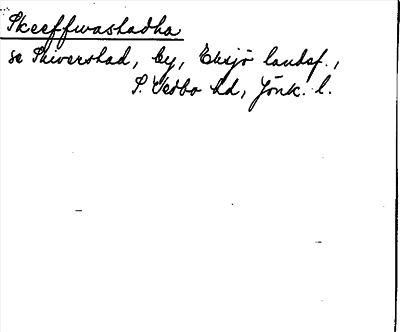 Skeeffwashadha
se Skiverstad, by, Eksjö landsf.,
S. Vedbo hd, Jönk. l.